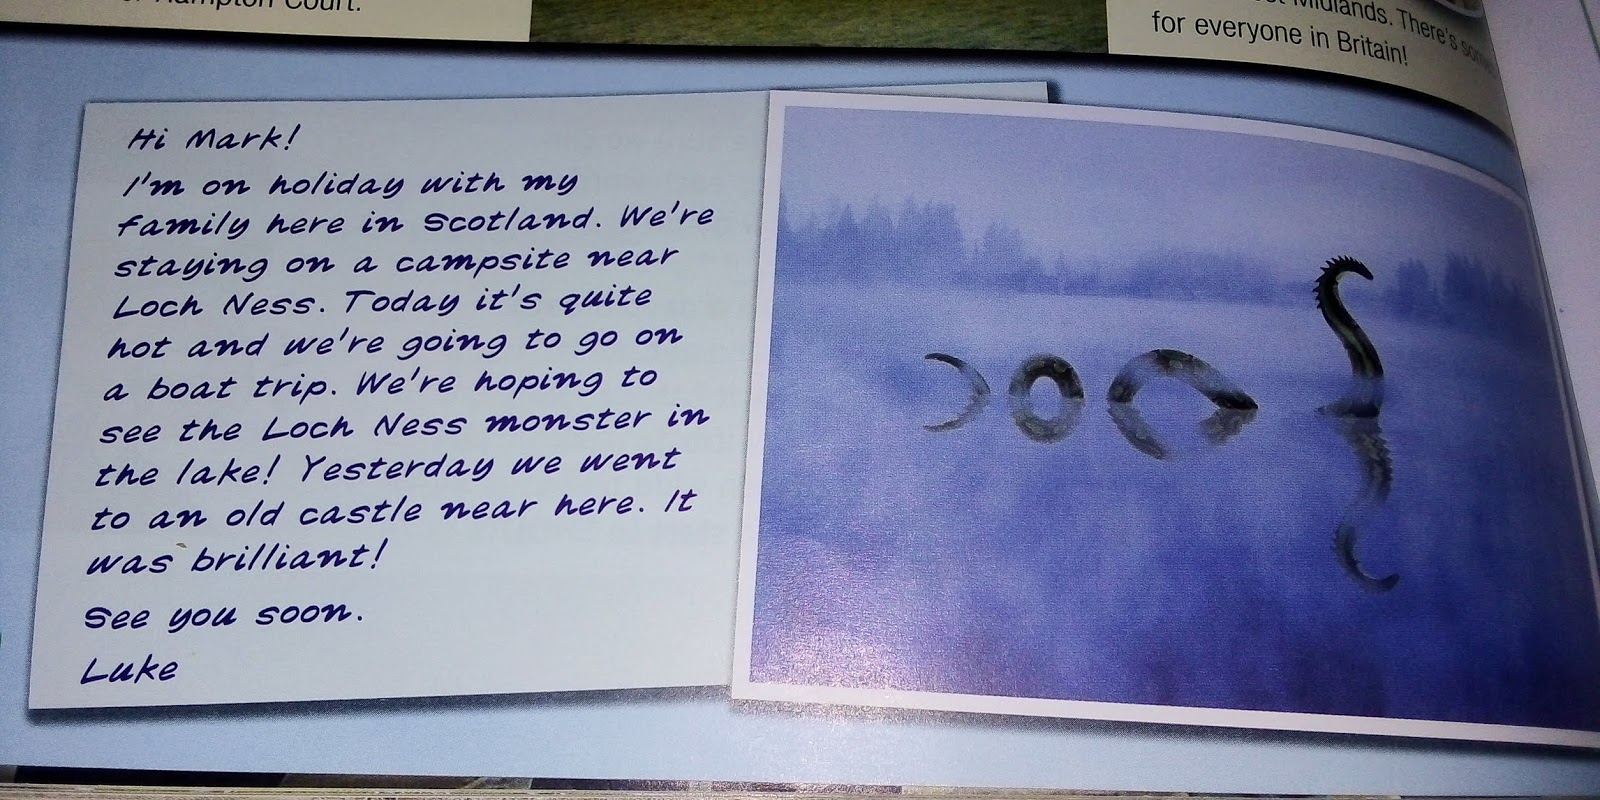 Hampton Court.
Midlands. There's
for everyone in Britain!
Hi Mark!
I'm on holiday with my
family here in Scotland. We're
staying on a campsite near
Loch Ness. Today it's quite
hot and we're going to go on
a boat trip. We're hoping to
see the Loch Ness monster in
the lake! Yesterday we went
to an old castle near here. It
was brilliant!
See you soon.
Luke